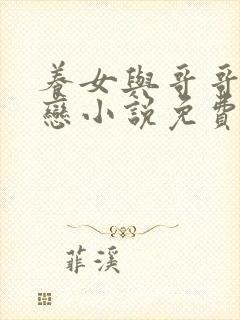 養女與哥哥
戀小說免費
菲溪